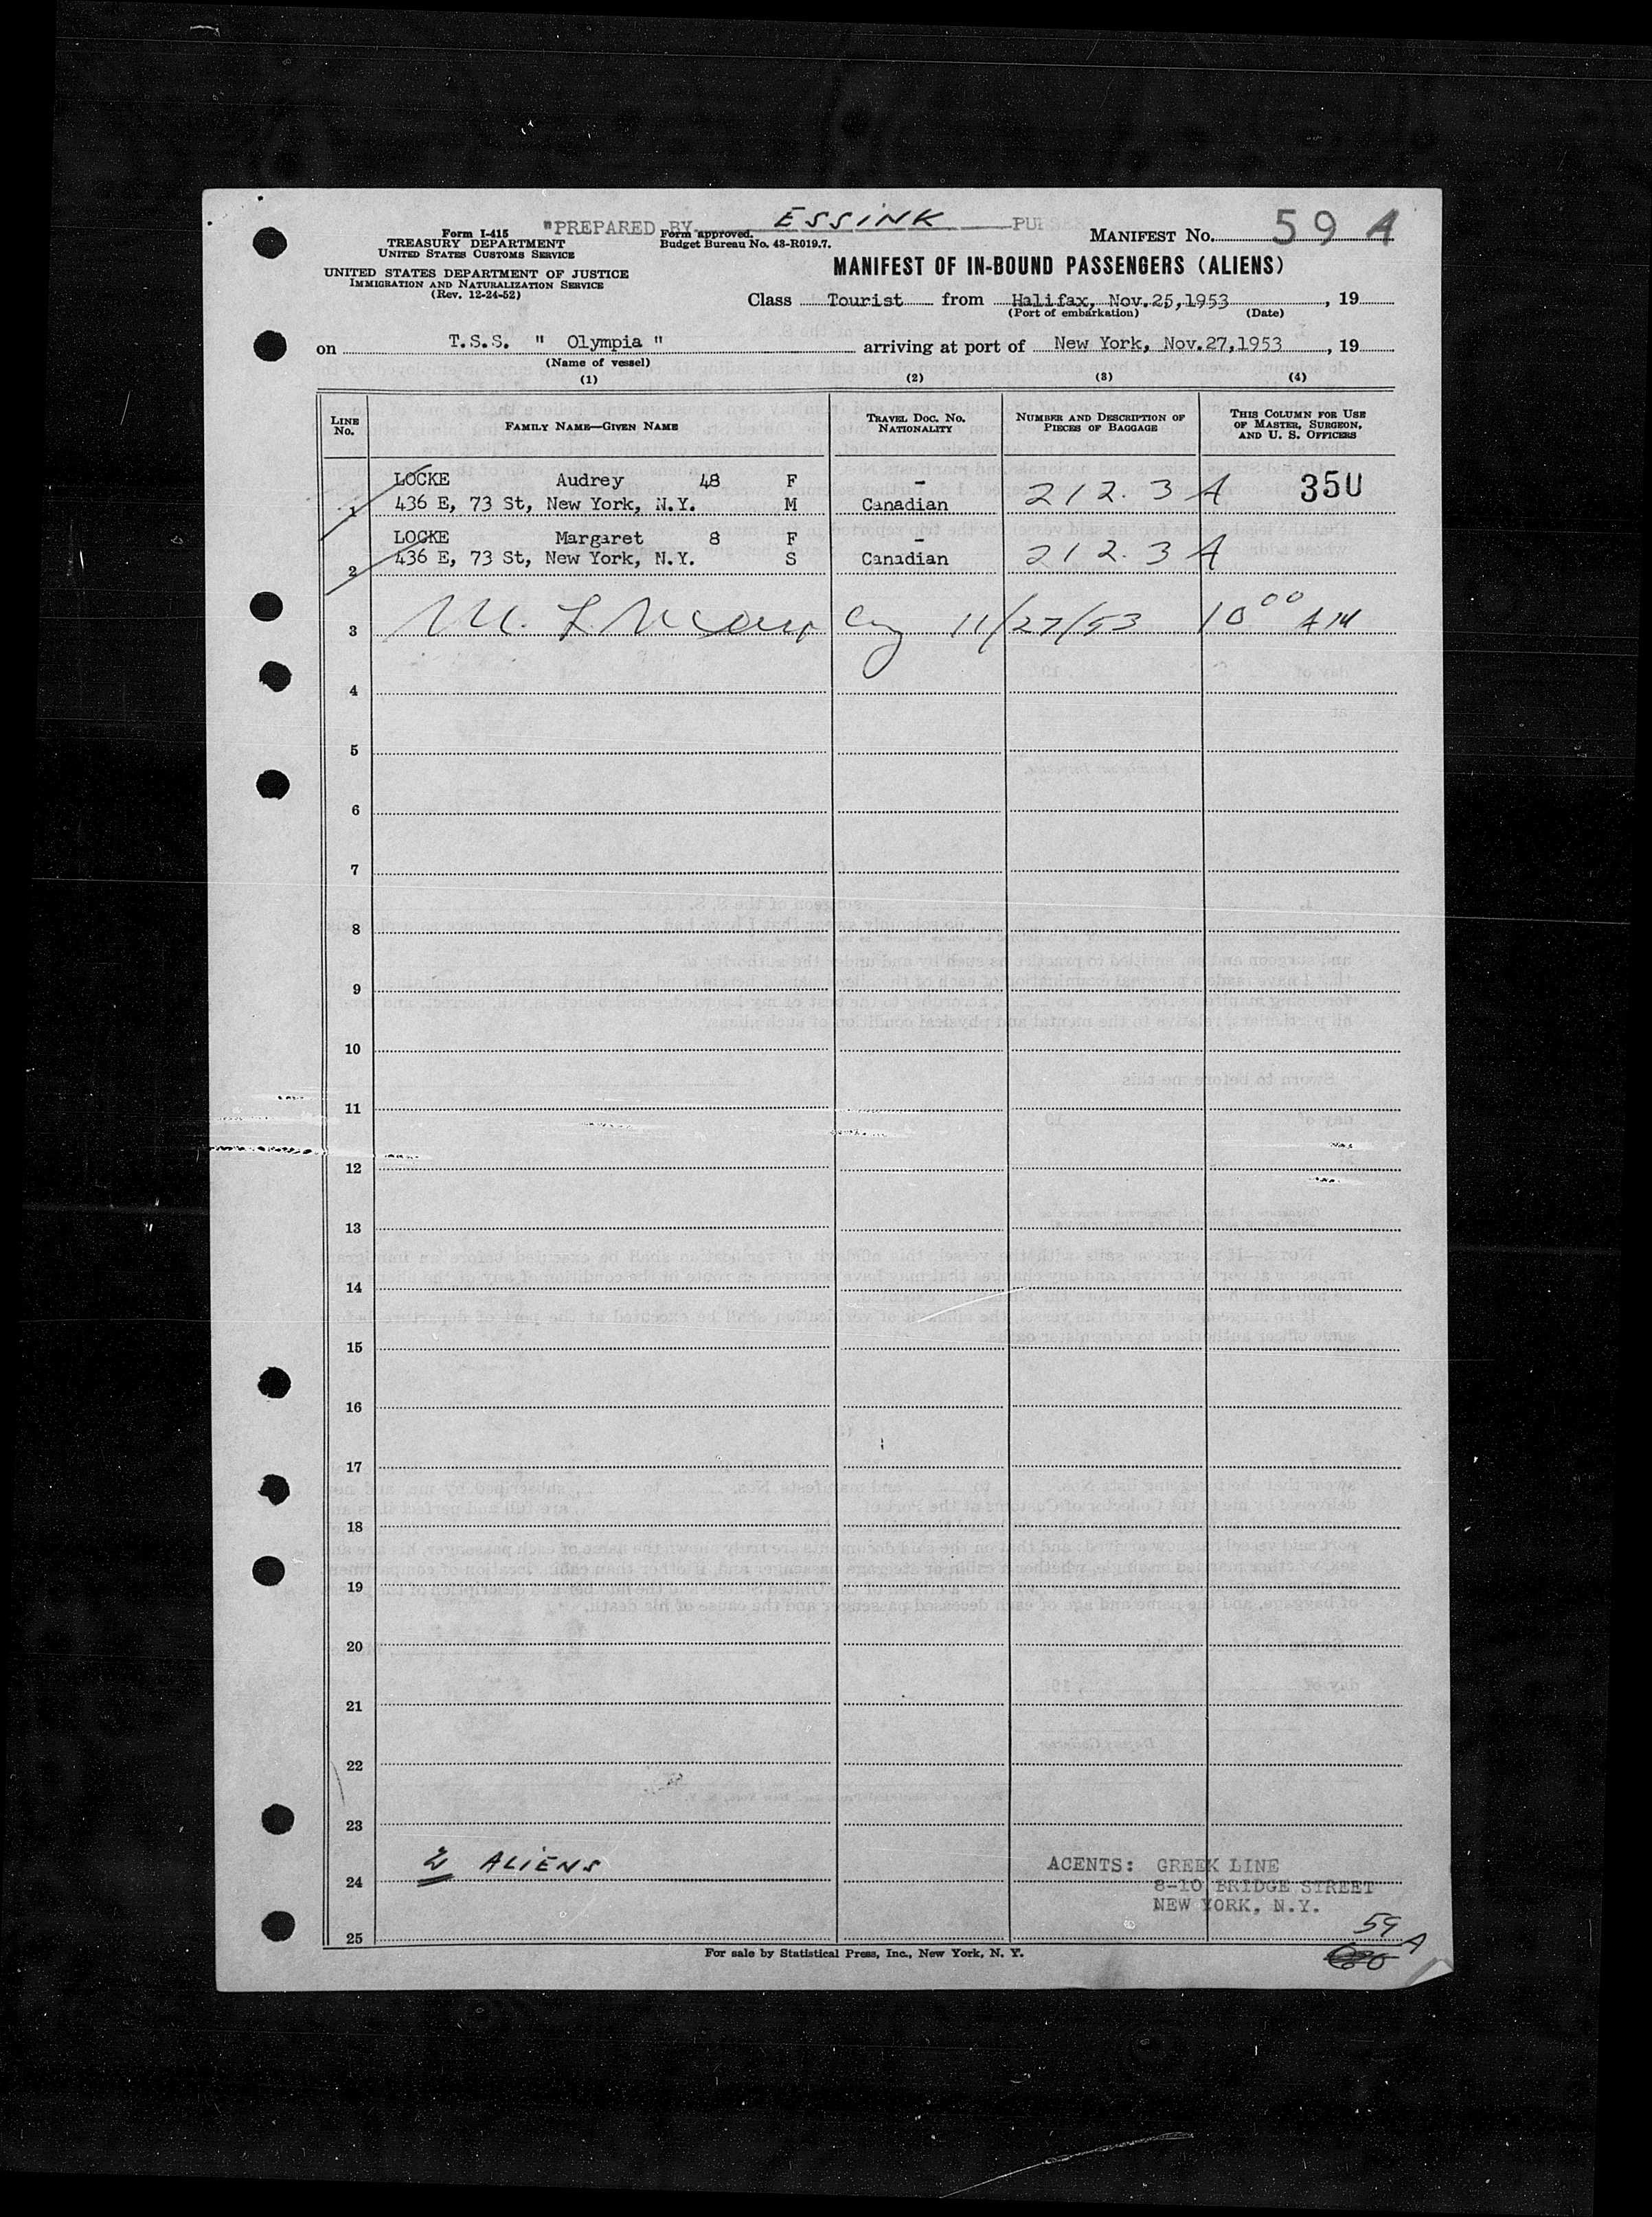 "PREPARED BY ESSINK
Form I-415
TREASURY DEPARTMENT
UNITED STATES CUSTOMS SERVICE
Form approved.
Budget Bureau No. 43-R019.7.
MANIFEST No. 59 A
UNITED STATES DEPARTMENT OF JUSTICE
IMMIGRATION AND NATURALIZATION SERVICE
(Rev. 12-24-52)
MANIFEST OF IN-BOUND PASSENGERS (ALIENS)
Class Tourist from Halifax, Nov.25,1953, 19
(Port of embarkation) (Date)
on T.S.S. " Olympia " arriving at port of New York, Nov.27,1953, 19
(Name of vessel)
(1) (2) (3) (4)
LINE No. FAMILY NAME—GIVEN NAME TRAVEL DOC. NO. NATIONALITY NUMBER AND DESCRIPTION OF PIECES OF BAGGAGE THIS COLUMN FOR USE OF MASTER, SURGEON, AND U. S. OFFICERS
LOCKE Audrey 48 F - 350
1 436 E, 73 St, New York, N.Y. M Canadian 212.3 A
LOCKE Margaret 8 F -
2 436 E, 73 St, New York, N.Y. S Canadian 212.3 A
3 11/27/53 10 00 AM
4
5
6
7
8
9
10
11
12
13
14
15
16
17
18
19
20
21
22
23
2 ALIENS
24
25
ACENTS: GREEK LINE
8-10 BRIDGE STREET
NEW YORK, N.Y.
59 A
For sale by Statistical Press, Inc., New York, N. Y.